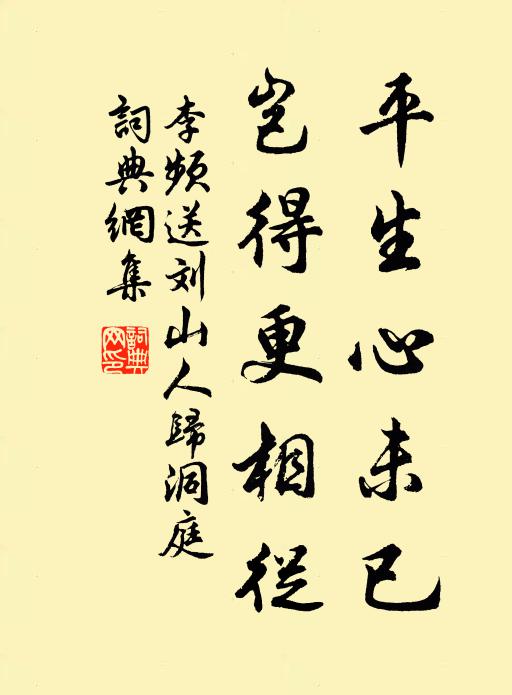 平生心未已
岂得更相從
李频送刘山人歸洞庭
詞典網集
詞典
网印